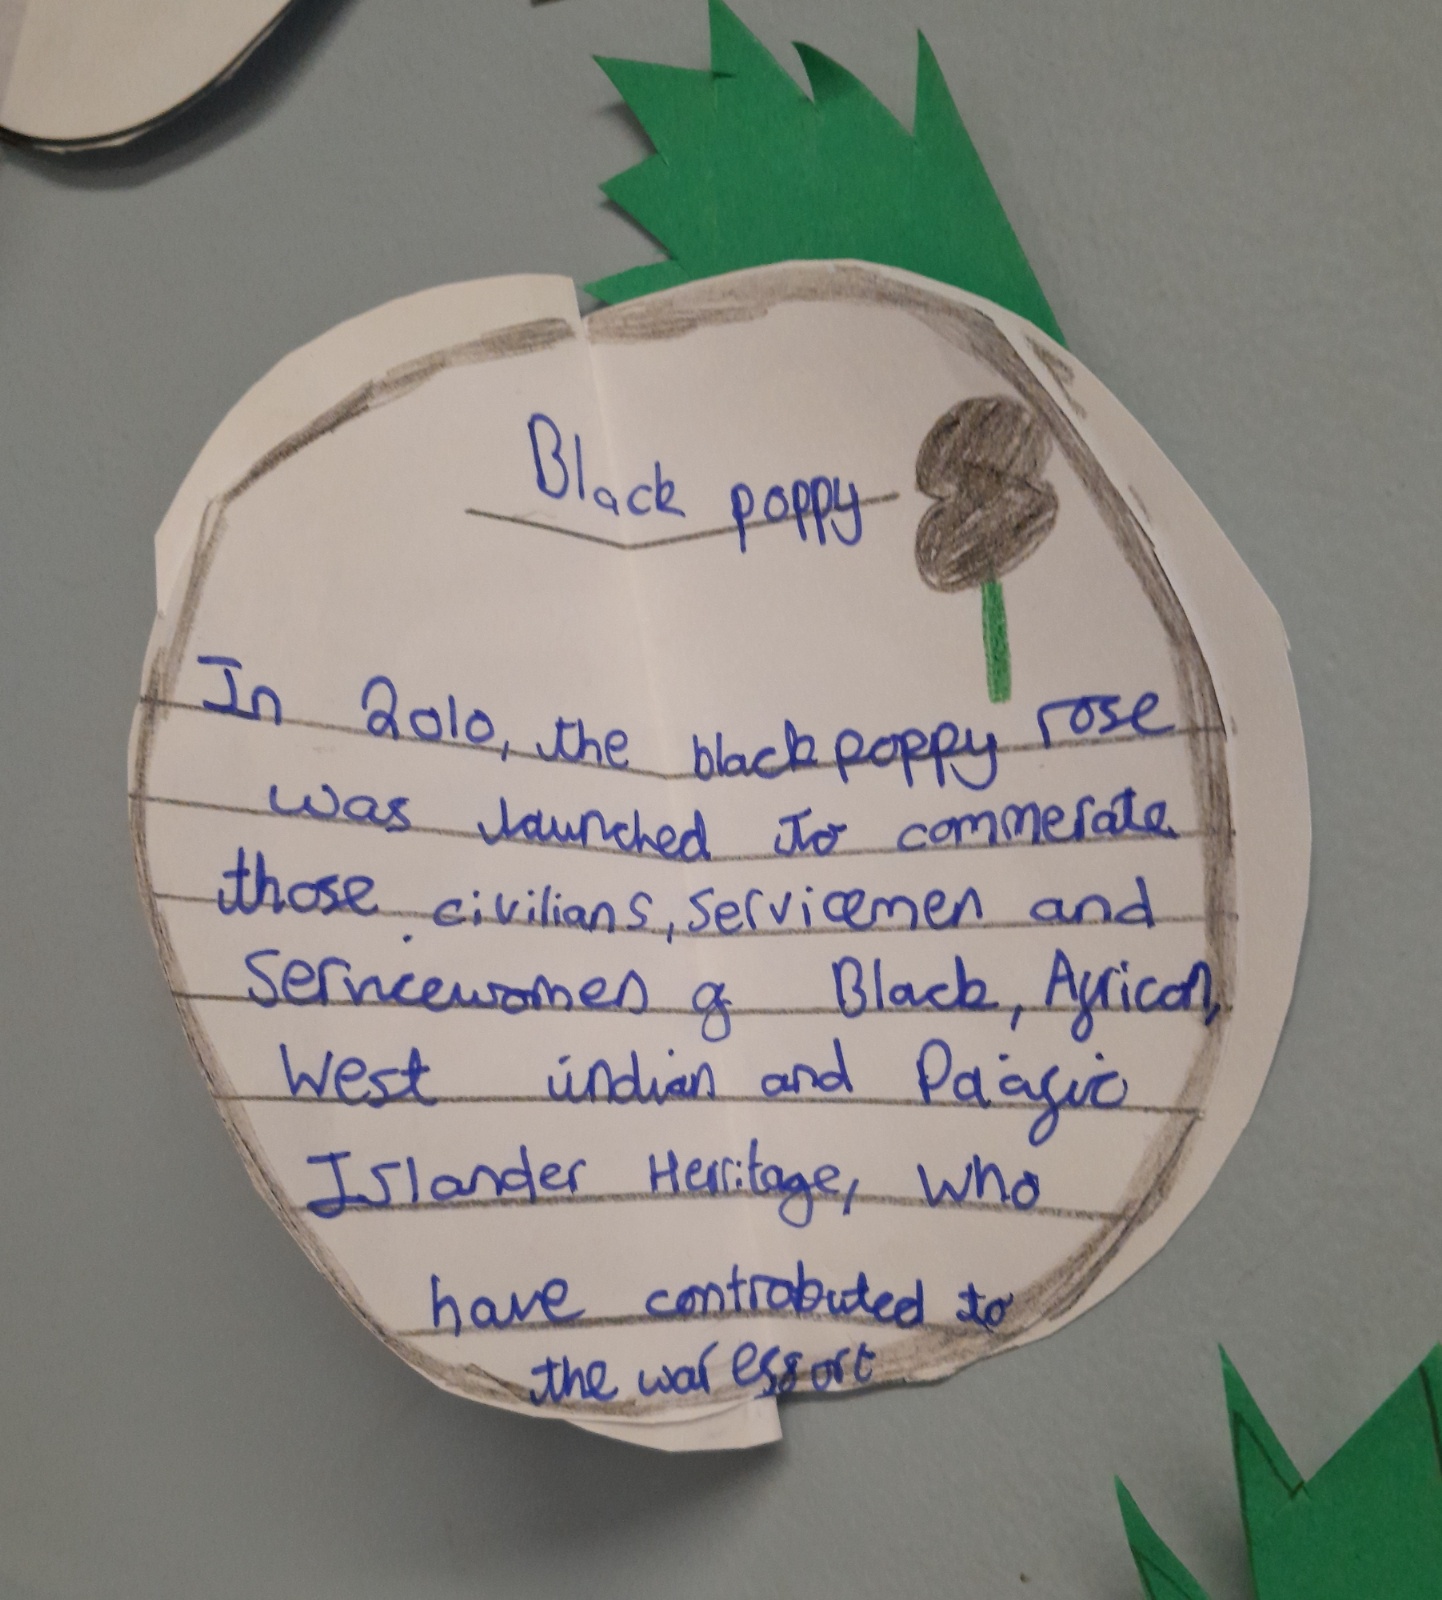 Black poppy
In 2010, the black poppy rose
was launched to commerate
those civilians, servicemen and
Servicewomen of Black, African,
West indian and Paacific
Islander Herritage, who
have controbuted to
the war effort